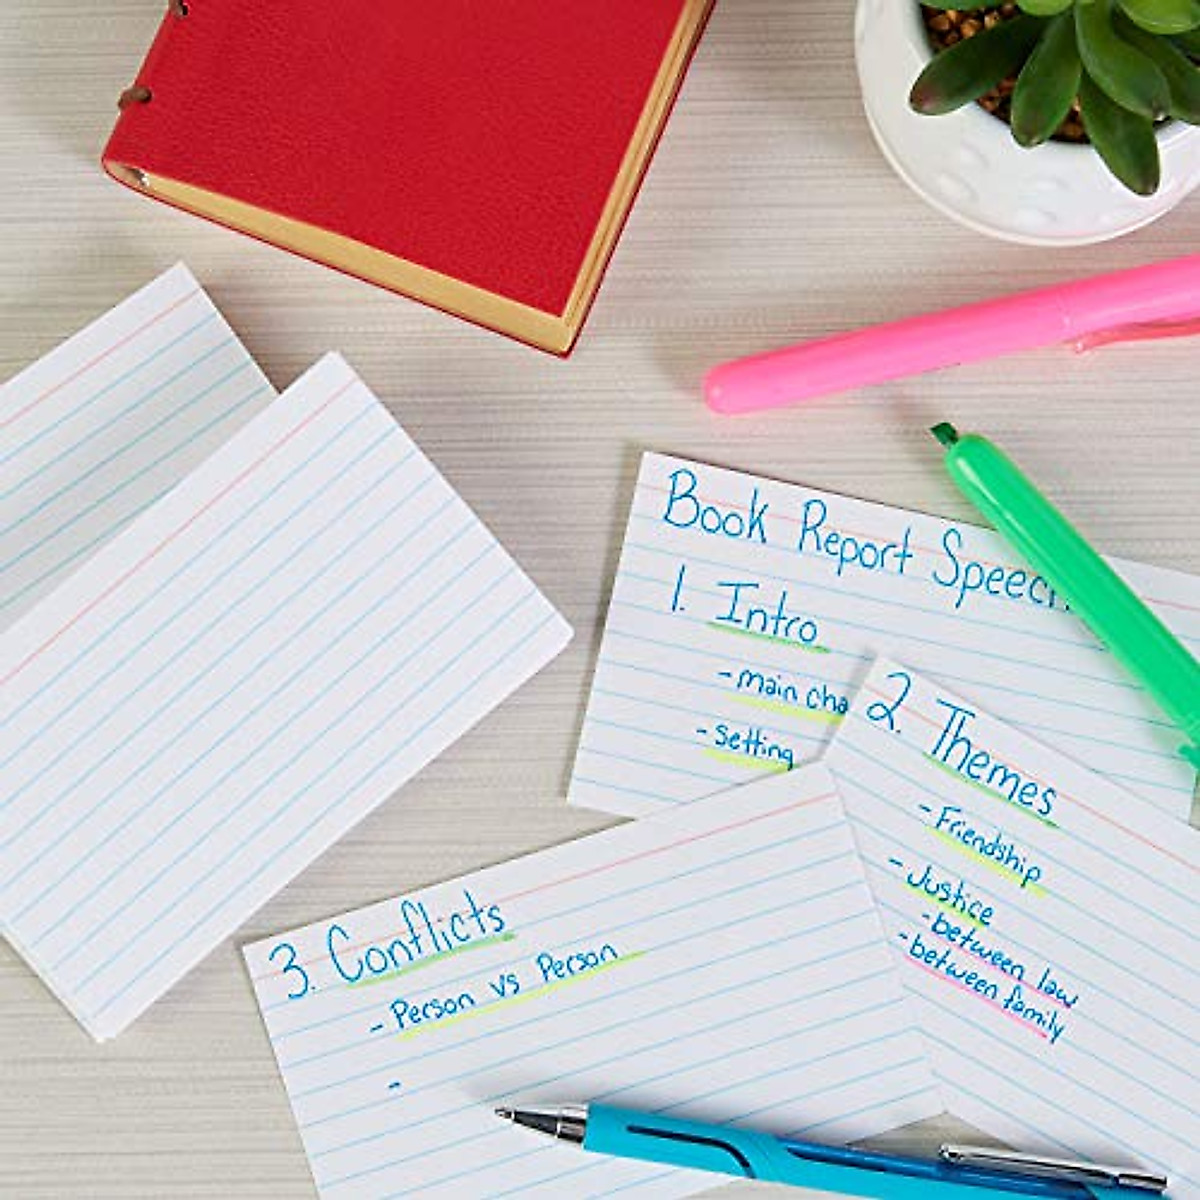 Book Report Speech
1. Intro
- main cha
- Setting
2. Themes
- Friendship
- Justice
- between law
- between family
3. Conflicts
- Person vs Person
-